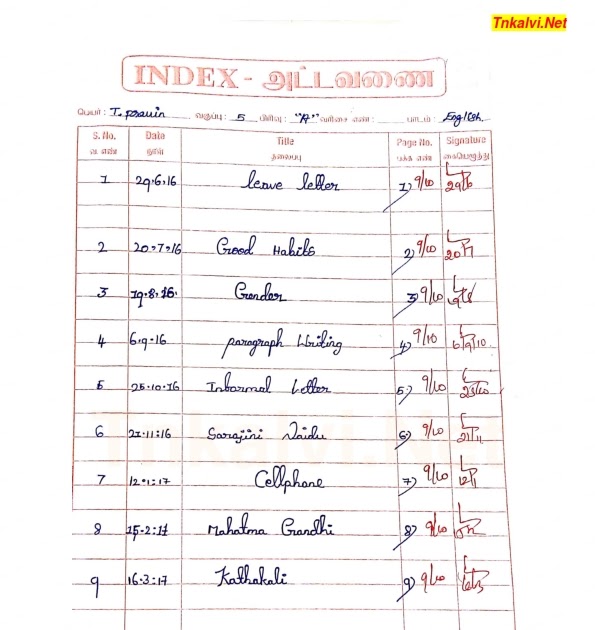 Tnkalvi.Net
INDEX - அட்டவணை
பெயர் : T. pravin வகுப்பு : 5 பிரிவு : "A" வரிசை எண் : பாடம் : English.
S. No. Date Title Page No. Signature
வ. எண் நாள் தலைப்பு பக்க எண் கையெழுத்து
1 29.6.16 leave letter 1) 9/10 29/6
2 20.7.16 Good Habits 2) 9/10 20/7
3 19.8.16. Gender 3) 9/10 19/8
4 6.9.16 paragraph Writing 4) 9/10
5 25.10.16 Informal Letter 5) 9/10 25/10
6 21.11.16 Sarojini Naidu 6) 9/10 21/11
7 12.1.17 Cellphone 7) 9/10 12/1
8 15.2.17 Mahatma Gandhi 8) 9/10
9 16.3.17 Kathakali 9) 9/10 16/3
Tnkalvi.Net